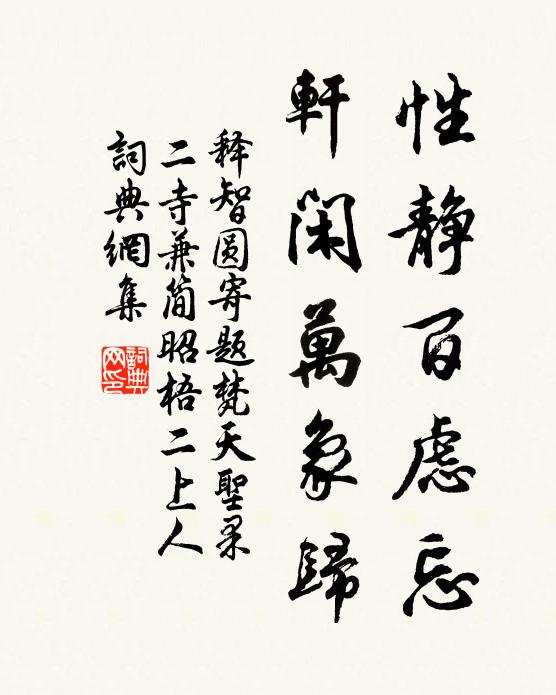 性靜百慮忘
軒閑萬象歸
释智圆寄题梵天聖果
二寺兼简昭梧二上人
詞典網集
詞典
网印